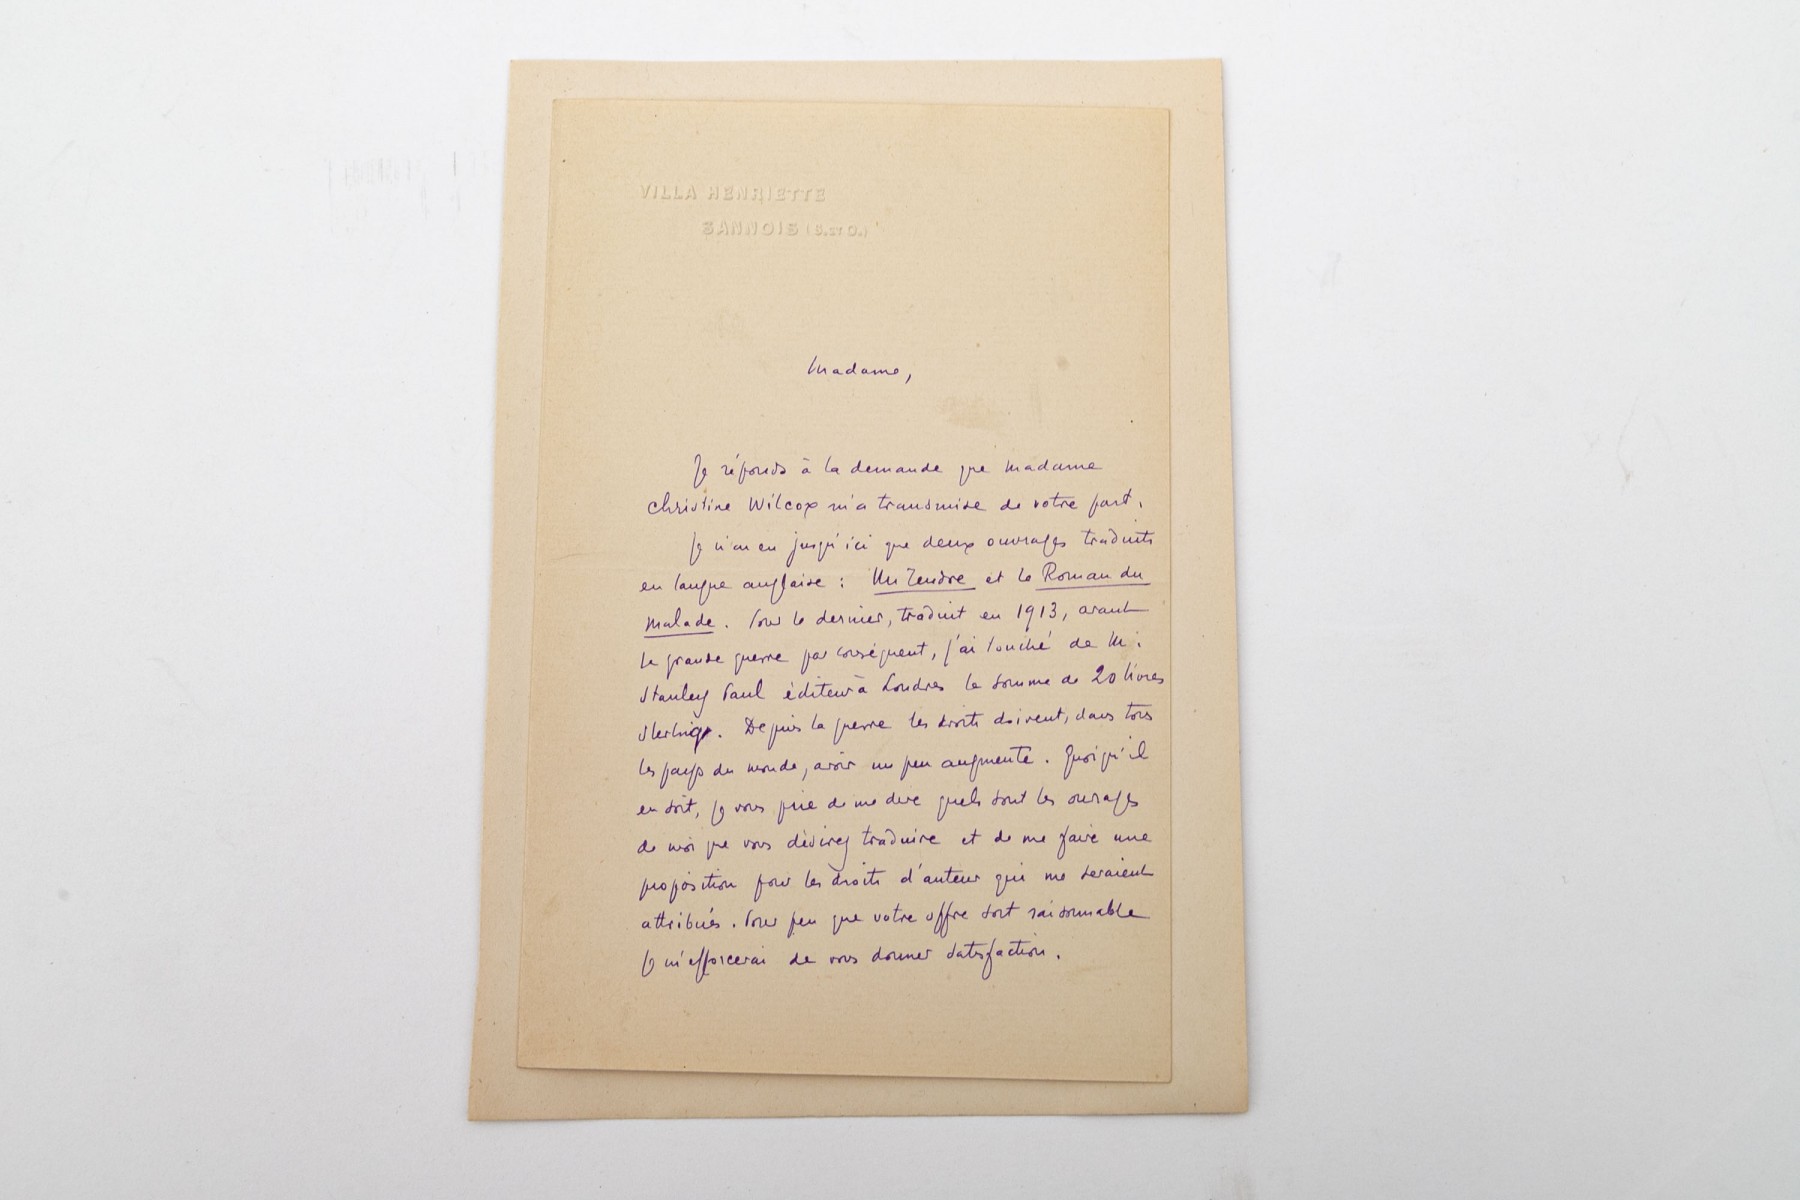 VILLA HENRIETTE
SANNOIS (S. ET O.)
Madame,
Je réponds à la demande que Madame
Christine Wilcox m'a transmise de votre part.
Je n'ai eu jusqu'ici que deux ouvrages traduits
en langue anglaise : Un Tendre et le Roman du
Malade. Pour le dernier, traduit en 1913, avant
la grande guerre par conséquent, j'ai touché de M.
Stanley Paul éditeur à Londres la somme de 20 livres
sterling. Depuis la guerre les droits doivent, dans tous
les pays du monde, avoir un peu augmenté. Quoiqu'il
en soit, je vous prie de me dire quels sont les ouvrages
de moi que vous désirez traduire et de me faire une
proposition pour les droits d'auteur qui me seraient
attribués. Pour peu que votre offre soit raisonnable
je m'efforcerai de vous donner satisfaction.